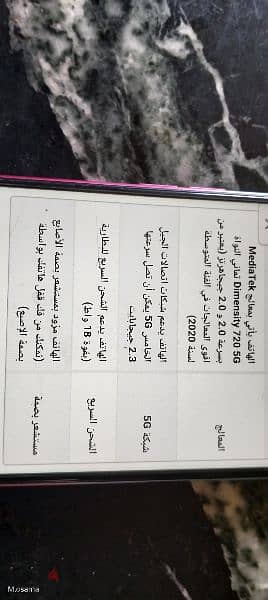 المعالج
الهاتف يأتي بمعالج MediaTek
Dimensity 720 5G ثماني النواة
بسرعة 2.0 و 2.0 جيجاهرتز (يعتبر من
اقوى المعالجات في الفئة المتوسطة
لسنة 2020)
شبكة 5G
الهاتف يدعم شبكات اتصالات الجيل
الخامس 5G يمكن أن تصل سرعتها
2.3 جيجابايت
الشحن السريع
الهاتف يدعم الشحن السريع للبطارية
(بقوة 18 واط)
مستشعر بصمة
الهاتف مزود بمستشعر بصمة الأصابع
(تمكنك من فك قفل هاتفك بواسطة
بصمة الإصبع)
M.osama